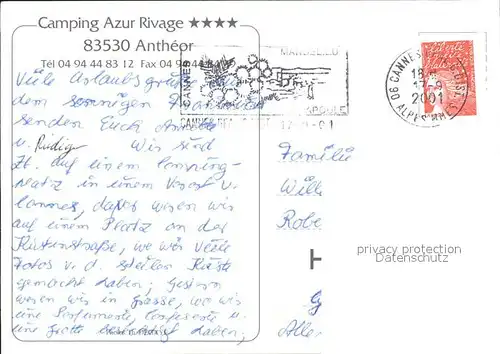 Camping Azur Rivage ★★★★
83530 Anthéor
Tél 04 94 44 83 12 Fax 04 94 44
Viele Urlaubsgrüße
dem sonnigen
senden Euch
u. Rüdiger Wir sind
Zt. auf einem Camping-
platz in einem Vorort v.
Cannes, davor waren wir
auf einem Platz an der
Küstenstraße, wo wir viele
Fotos v. d. steilen Küste
gemacht haben; Gestern
waren wir in Grasse, wo wir
eine Parfumerie, Confiserie u.
eine Grotte besichtigt haben;
CANNES
MANDELIEU
NAPOULE
17-9-01
06 CANNES
18
17-9
2001
ALPES MMES
Familie
Will
Robe
H
G
Alle
privacy protection
Datenschutz